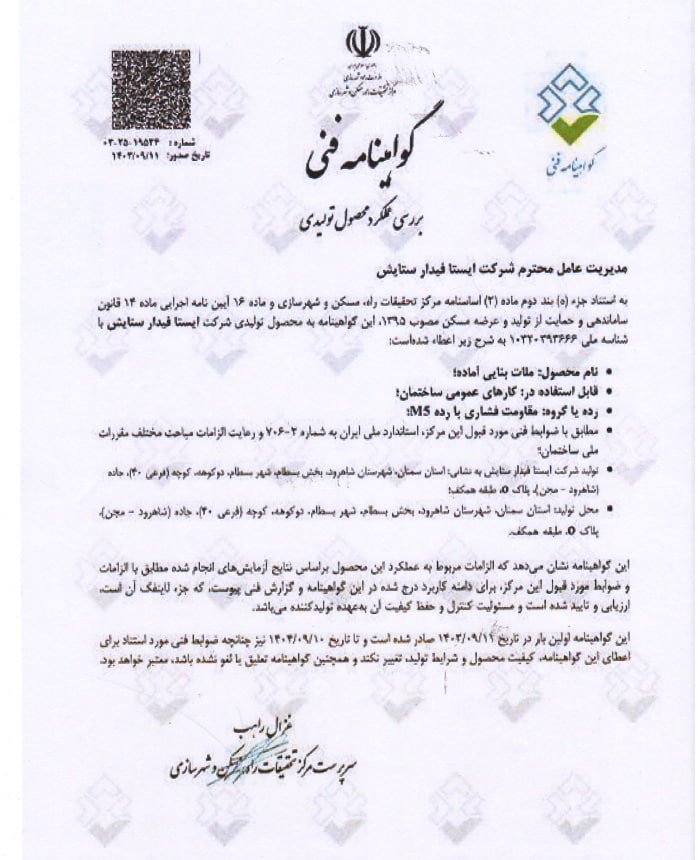 جمهوری اسلامی ایران
وزارت راه و شهرسازی
مرکز تحقیقات راه، مسکن و شهرسازی
گواهینامه فنی
بررسی عملکرد محصول تولیدی
شماره: ۰۳-۲۵-۱۹۵۲۴
تاریخ صدور: ۱۴۰۳/۰۹/۱۱
گواهینامه فنی
مدیریت عامل محترم شرکت ایستا فیدار ستایش
به استناد جزء (ه) بند دوم ماده (۲) اساسنامه مرکز تحقیقات راه، مسکن و شهرسازی و ماده ۱۶ آیین نامه اجرایی ماده ۱۴ قانون
ساماندهی و حمایت از تولید و عرضه مسکن مصوب ۱۳۹۵، این گواهینامه به محصول تولیدی شرکت ایستا فیدار ستایش با
شناسه ملی ۱۰۳۲۰۳۹۳۶۶۶ به شرح زیر اعطاء شده‌است:
• نام محصول: ملات بنایی آماده؛
• قابل استفاده در: کارهای عمومی ساختمان؛
• رده یا گروه: مقاومت فشاری با رده M5؛
• مطابق با ضوابط فنی مورد قبول این مرکز، استاندارد ملی ایران به شماره ۲-۷۰۶ و رعایت الزامات مباحث مختلف مقررات
ملی ساختمان؛
• تولید شرکت ایستا فیدار ستایش به نشانی: استان سمنان، شهرستان شاهرود، بخش بسطام، شهر بسطام، دوکوهه، کوچه (فرعی ۴۰)، جاده
(شاهرود - مجن)، پلاک ۰، طبقه همکف؛
• محل تولید: استان سمنان، شهرستان شاهرود، بخش بسطام، شهر بسطام، دوکوهه، کوچه (فرعی ۴۰)، جاده (شاهرود - مجن)،
پلاک ۰، طبقه همکف.
این گواهینامه نشان می‌دهد که الزامات مربوط به عملکرد این محصول براساس نتایج آزمایش‌های انجام شده مطابق با الزامات
و ضوابط مورد قبول این مرکز، برای دامنه کاربرد درج شده در این گواهینامه و گزارش فنی پیوست، که جزء لاینفک آن است،
ارزیابی و تایید شده است و مسئولیت کنترل و حفظ کیفیت آن به‌عهده تولیدکننده می‌باشد.
این گواهینامه اولین بار در تاریخ ۱۴۰۳/۰۹/۱۱ صادر شده است و تا تاریخ ۱۴۰۴/۰۹/۱۰ نیز چنانچه ضوابط فنی مورد استناد برای
اعطای این گواهینامه، کیفیت محصول و شرایط تولید، تغییر نکند و همچنین گواهینامه تعلیق یا لغو نشده باشد، معتبر خواهد بود.
غزال راهب
سرپرست مرکز تحقیقات راه، مسکن و شهرسازی